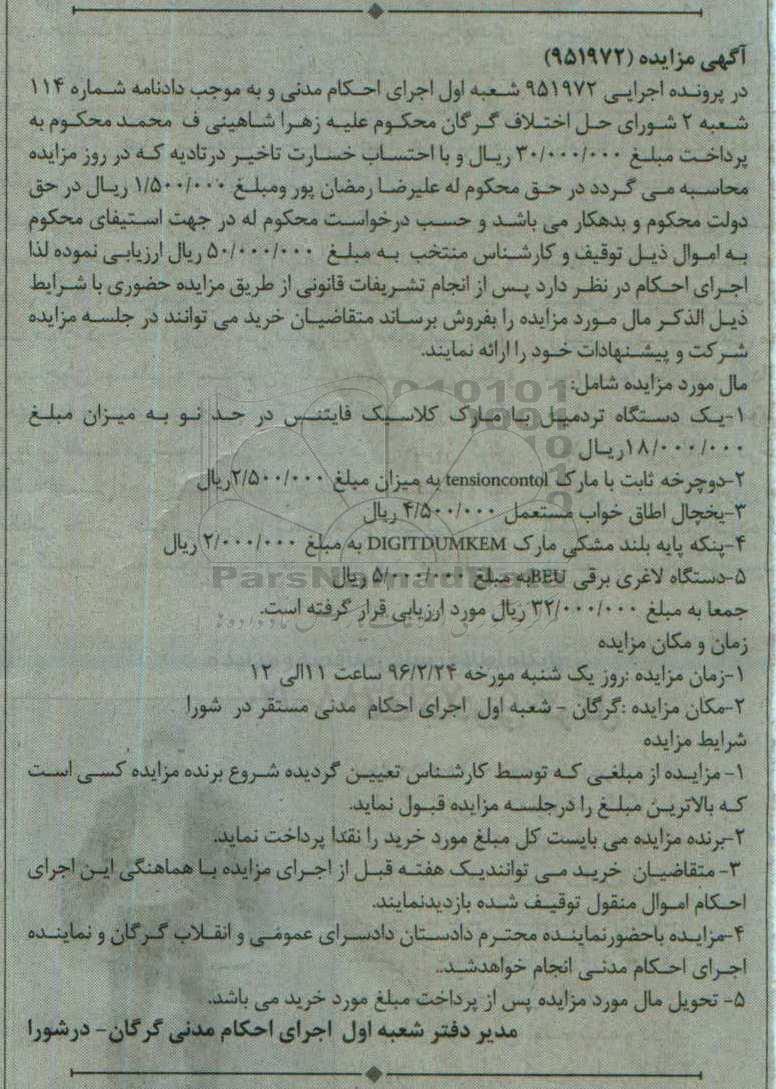 آگهی مزایده (۹۵۱۹۷۲)
در پرونده اجرایی ۹۵۱۹۷۲ شعبه اول اجرای احکام مدنی و به موجب دادنامه شماره ۱۱۴
شعبه ۲ شورای حل اختلاف گرگان محکوم علیه زهرا شاهینی ف محمد محکوم به
پرداخت مبلغ ۳۰/۰۰۰/۰۰۰ ریال و با احتساب خسارت تاخیر درتادیه که در روز مزایده
محاسبه می گردد در حق محکوم له علیرضا رمضان پور ومبلغ ۱/۵۰۰/۰۰۰ ریال در حق
دولت محکوم و بدهکار می باشد و حسب درخواست محکوم له در جهت استیفای محکوم
به اموال ذیل توقیف و کارشناس منتخب به مبلغ ۵۰/۰۰۰/۰۰۰ ریال ارزیابی نموده لذا
اجرای احکام در نظر دارد پس از انجام تشریفات قانونی از طریق مزایده حضوری با شرایط
ذیل الذکر مال مورد مزایده را بفروش برساند متقاضیان خرید می توانند در جلسه مزایده
شرکت و پیشنهادات خود را ارائه نمایند.
مال مورد مزایده شامل:
۱-یک دستگاه تردمیل با مارک کلاسیک فایتنس در حد نو به میزان مبلغ
۱۸/۰۰۰/۰۰۰ریال
۲-دوچرخه ثابت با مارک tensioncontol به میزان مبلغ ۲/۵۰۰/۰۰۰ریال
۳-یخچال اطاق خواب مستعمل ۴/۵۰۰/۰۰۰ ریال
۴-پنکه پایه بلند مشکی مارک DIGITDUMKEM به مبلغ ۲/۰۰۰/۰۰۰ ریال
۵-دستگاه لاغری برقی BEUبه مبلغ ۵/۰۰۰/۰۰۰ ریال
ParsNamadData
جمعا به مبلغ ۳۲/۰۰۰/۰۰۰ ریال مورد ارزیابی قرار گرفته است.
زمان و مکان مزایده
۱-زمان مزایده :روز یک شنبه مورخه ۹۶/۲/۲۴ ساعت ۱۱الی ۱۲
۲-مکان مزایده :گرگان - شعبه اول اجرای احکام مدنی مستقر در شورا
شرایط مزایده
۱- مزایده از مبلغی که توسط کارشناس تعیین گردیده شروع برنده مزایده کسی است
که بالاترین مبلغ را درجلسه مزایده قبول نماید.
۲-برنده مزایده می بایست کل مبلغ مورد خرید را نقدا پرداخت نماید.
۳- متقاضیان خرید می توانندیک هفته قبل از اجرای مزایده با هماهنگی این اجرای
احکام اموال منقول توقیف شده بازدیدنمایند.
۴-مزایده باحضورنماینده محترم دادستان دادسرای عمومی و انقلاب گرگان و نماینده
اجرای احکام مدنی انجام خواهدشد..
۵- تحویل مال مورد مزایده پس از پرداخت مبلغ مورد خرید می باشد.
مدیر دفتر شعبه اول اجرای احکام مدنی گرگان- درشورا